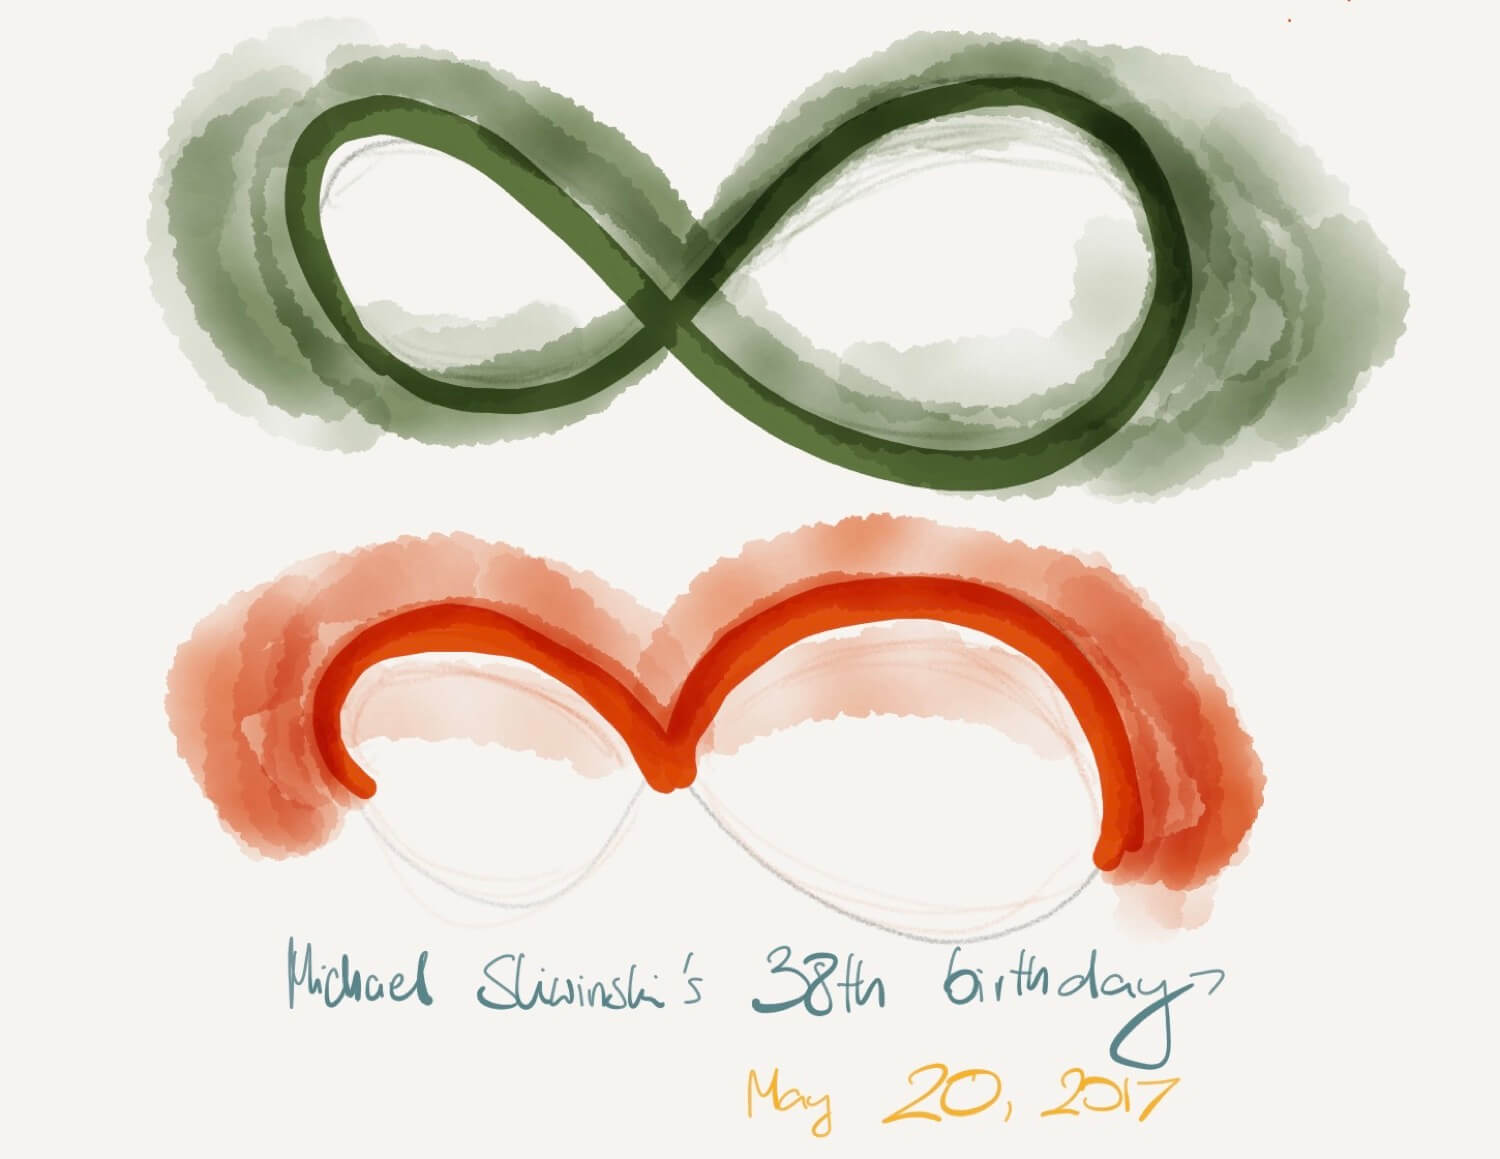 Michael Sliwinski's 38th birthday
May 20, 2017